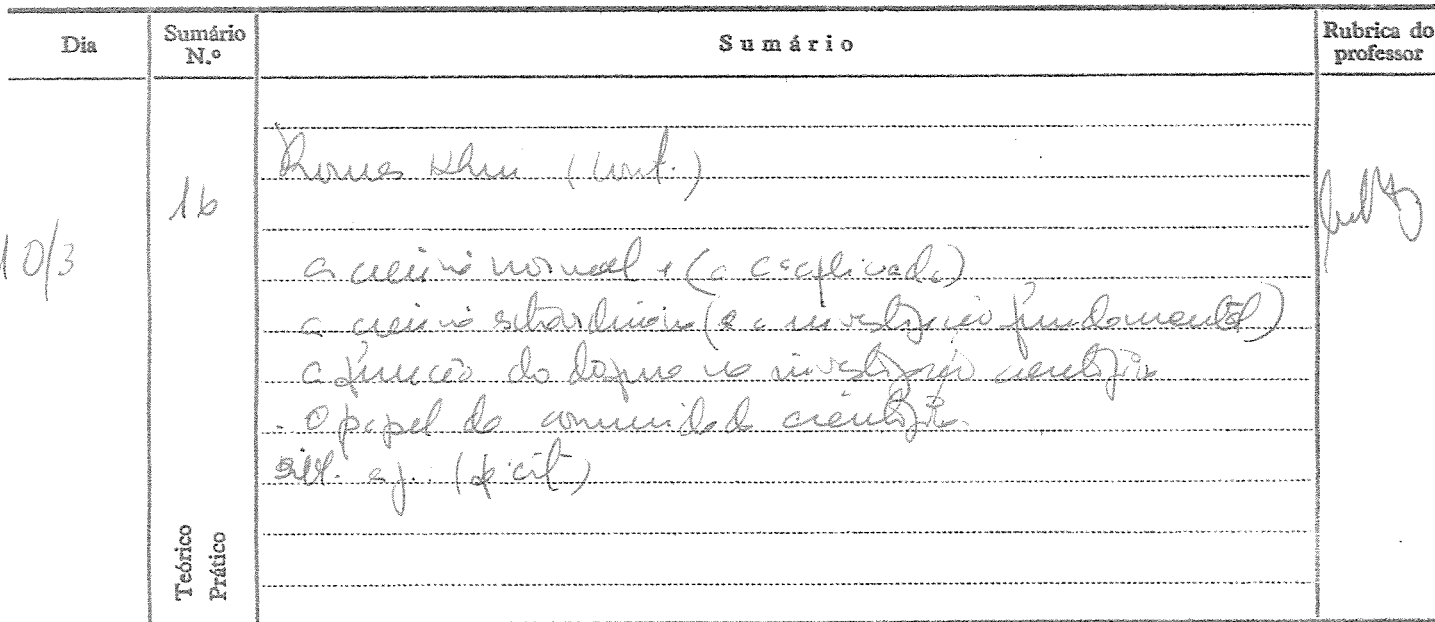 Dia
Sumário N.º
Sumário
Rubrica do professor
10/3
16
Thomas Khun (cont.)
a ciência normal e (a c. aplicada)
a ciência extraordinária (e a investigação fundamental)
a função do dogma na investigação científica
. O papel da comunidade científica.
(op. cit)
Teórico
Prático